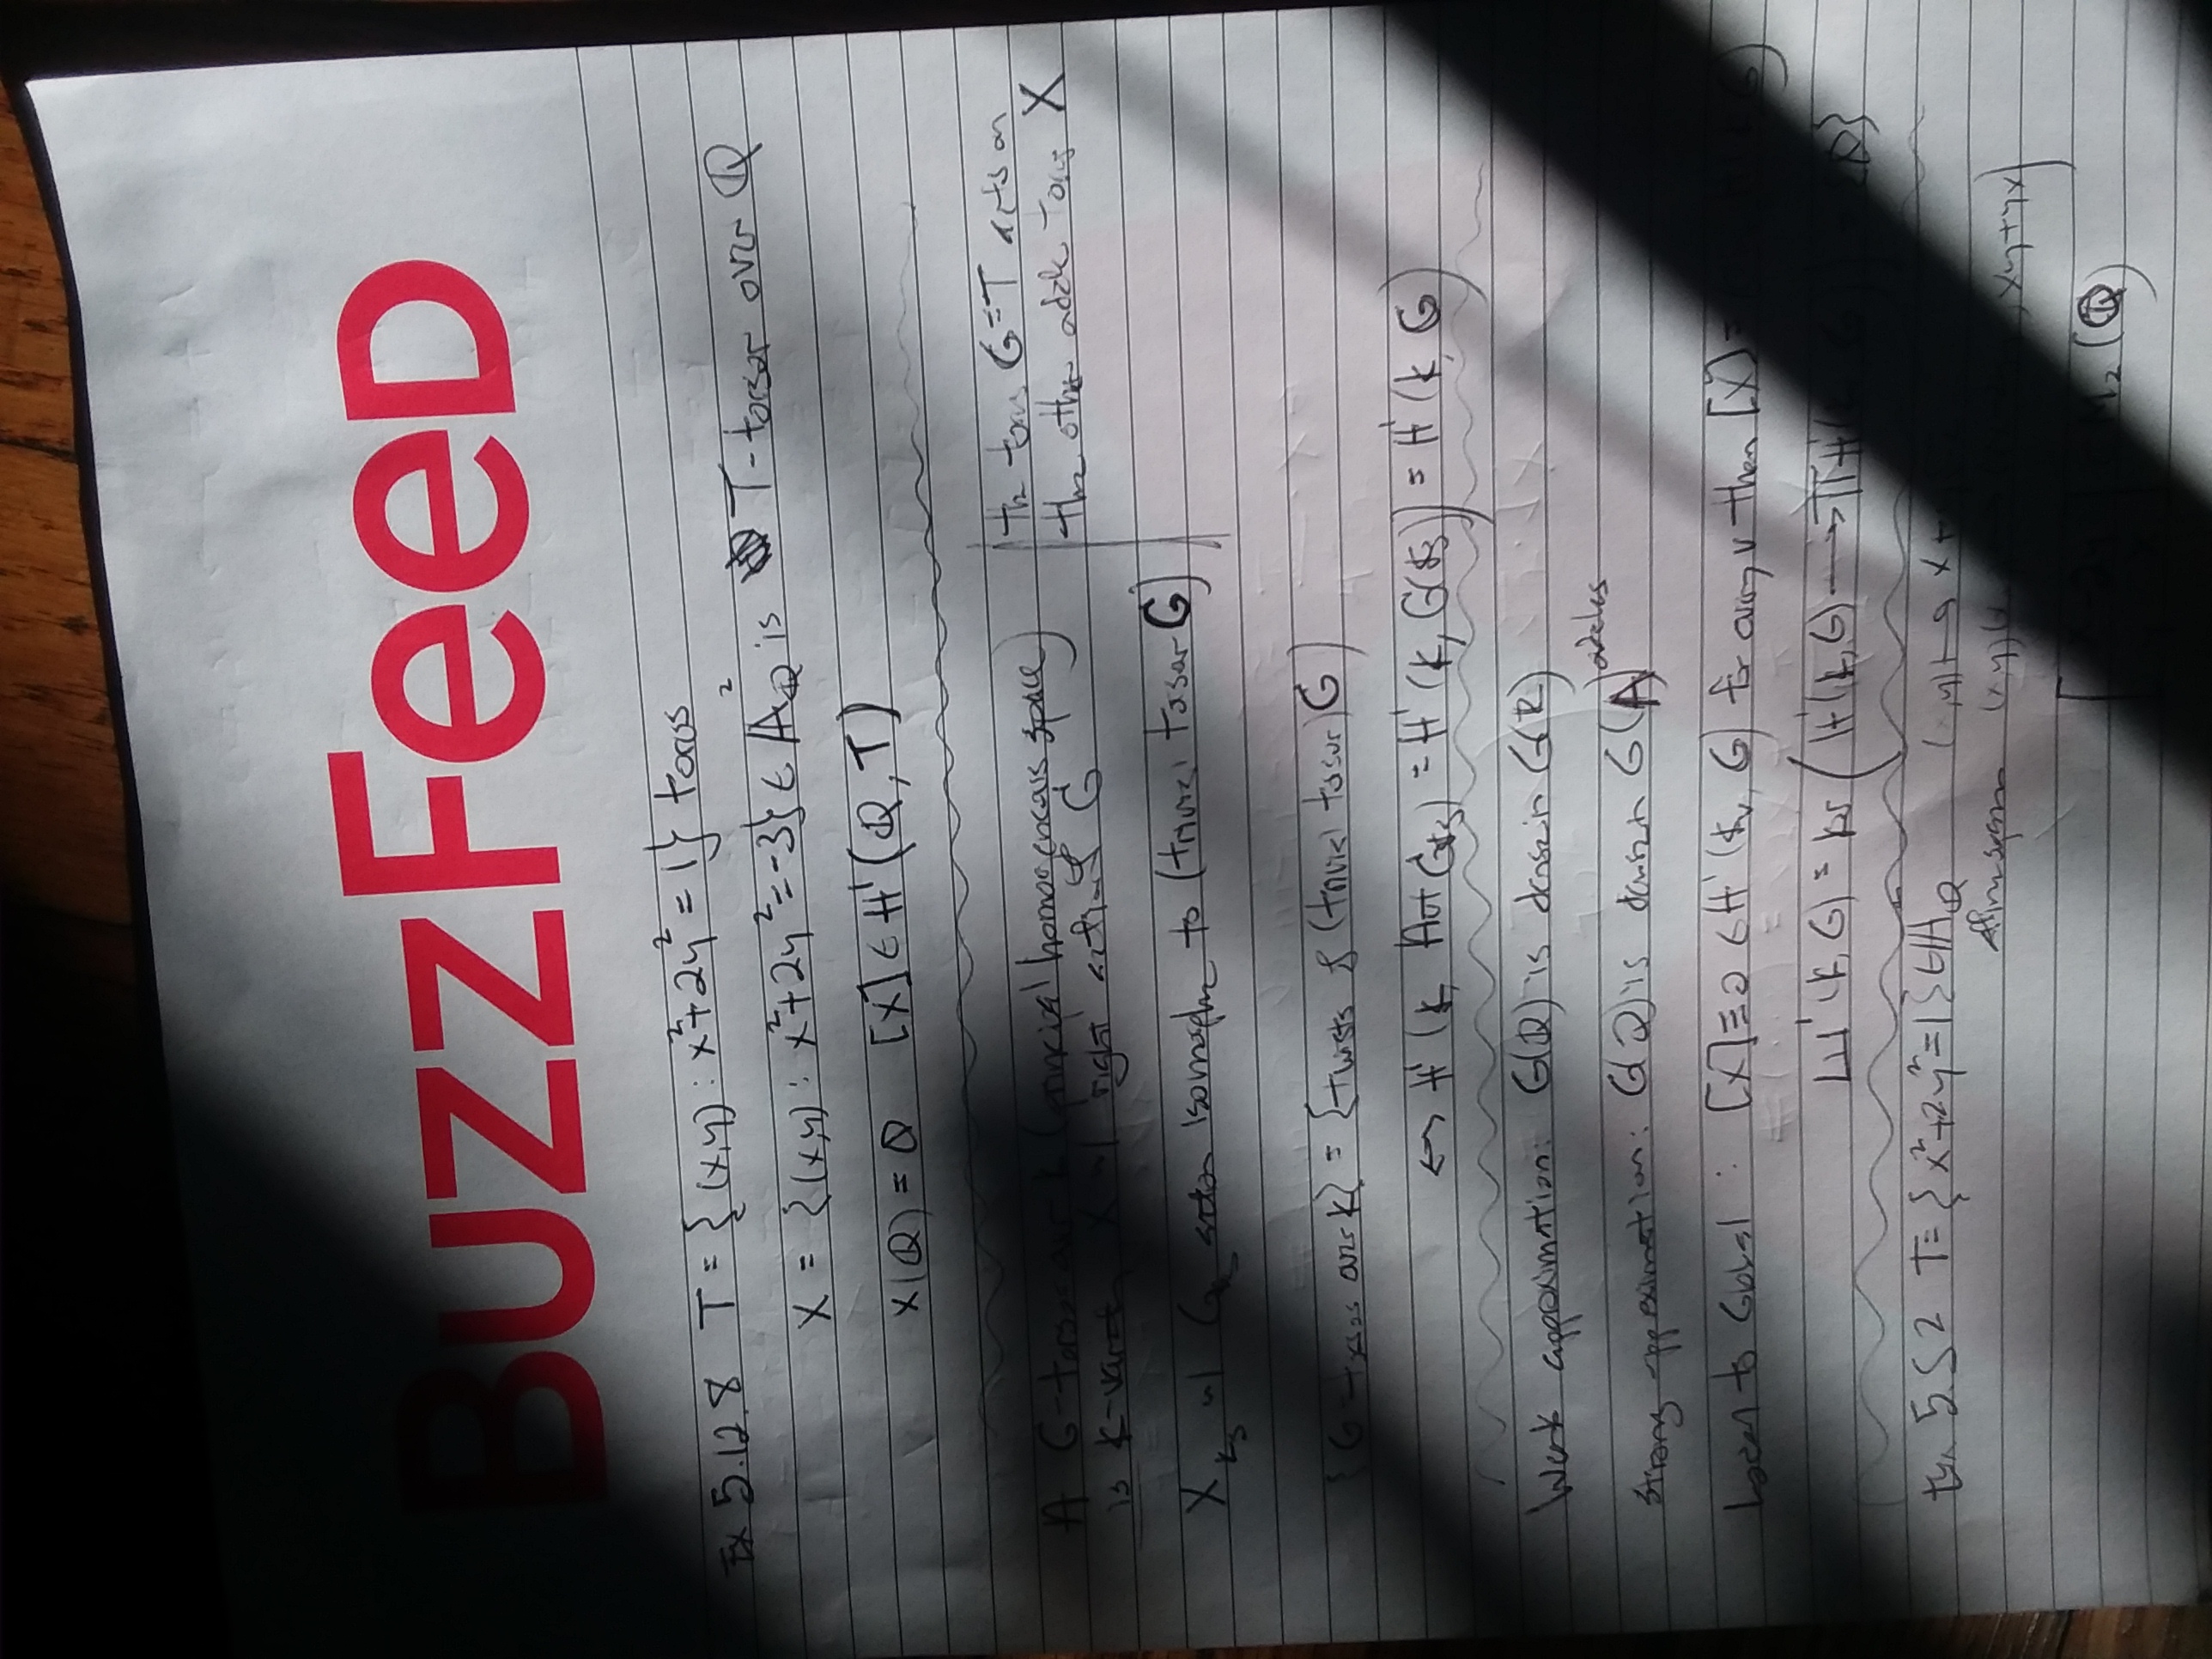 BUZZFEED
Ex 5.12.8 T = {(x,y) : x²+2y² = 1} torus
X = {(x,y) : x²+2y² = -3} ∈ 𝔸²_ℚ is T-torsor over ℚ
X(ℚ) = ∅ [X] ∈ H¹(ℚ, T)
A G-torsor over k (principal homogeneous space)
is k-variety X w/ right action of G
the torus G=T acts on
the other torus X
X_ks w/ G_ks action isomorphic to (trivial torsor G)
{G-torsors over k} = {twists of (trivial torsor) G}
↔ H¹(k, Aut G_ks) = H¹(k, G(ks)) = H¹(k, G)
Weak approximation: G(ℚ) is dense in G(ℝ)
Strong approximation: G(ℚ) is dense in G(𝔸) adeles
Local to Global : [X] ≡ 0 ∈ H¹(k_v, G) for every v then [X] =
Ш¹(k, G) = ker ( H¹(k, G) → ∏ H¹
5.5.2 T = {x²+2y²=1} ∈ 𝔸_ℚ
Affine space
xy+yx)
M₂(ℚ)